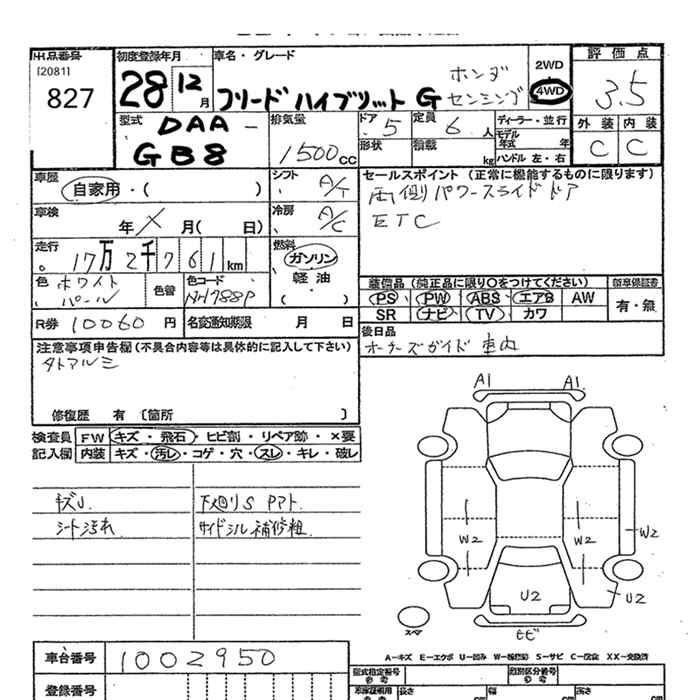 出品番号
[2081]
827
初度登録年月
28 12月
車名・グレード
フリードハイブリット G ホンダ
センシング
2WD
4WD
評価点
3.5
型式
DAA-
GB8
排気量
1500cc
ドア
5
定員
6人
ディーラー・並行
モデル
年式 年
ハンドル 左・右
形状
積載
kg
外装 内装
C C
車歴
自家用・( )
シフト
A/T
セールスポイント(正常に機能するものに限ります)
両側パワースライドドア
ETC
車検
年 月( 日)
冷房
A/C
走行
17万2千761km
燃料
ガソリン
軽油
( )
色
ホワイト
パール
色替
色コード
NH788P
装備品(純正品に限り○をつけてください)
PS PW ABS エアB AW
SR ナビ TV カワ
新車保証書
有・無
R券 10060円
名変通知期限 月 日
後日品
オーナーズガイド 車内
注意事項申告欄(不具合内容等は具体的に記入して下さい)
タトアルミ
修復歴 有 〔箇所 〕
検査員
記入欄
FW キズ・飛石・ヒビ割・リペア跡・×要
内装 キズ・汚レ・コゲ・穴・スレ・キレ・破レ
キズU.
シート汚れ
下廻りS PアT.
サイドシル補修粗
A1 A1
W2 W2 W2
U2 U2
スペア
ヒビ
A-キズ E-エクボ U-凹み W-補修跡 S-サビ C-腐食 XX-交換済
車台番号
1002950
登録番号
型式指定番号
参考
類別区分番号
参考
長さ
cm
幅
cm
高さ
cm